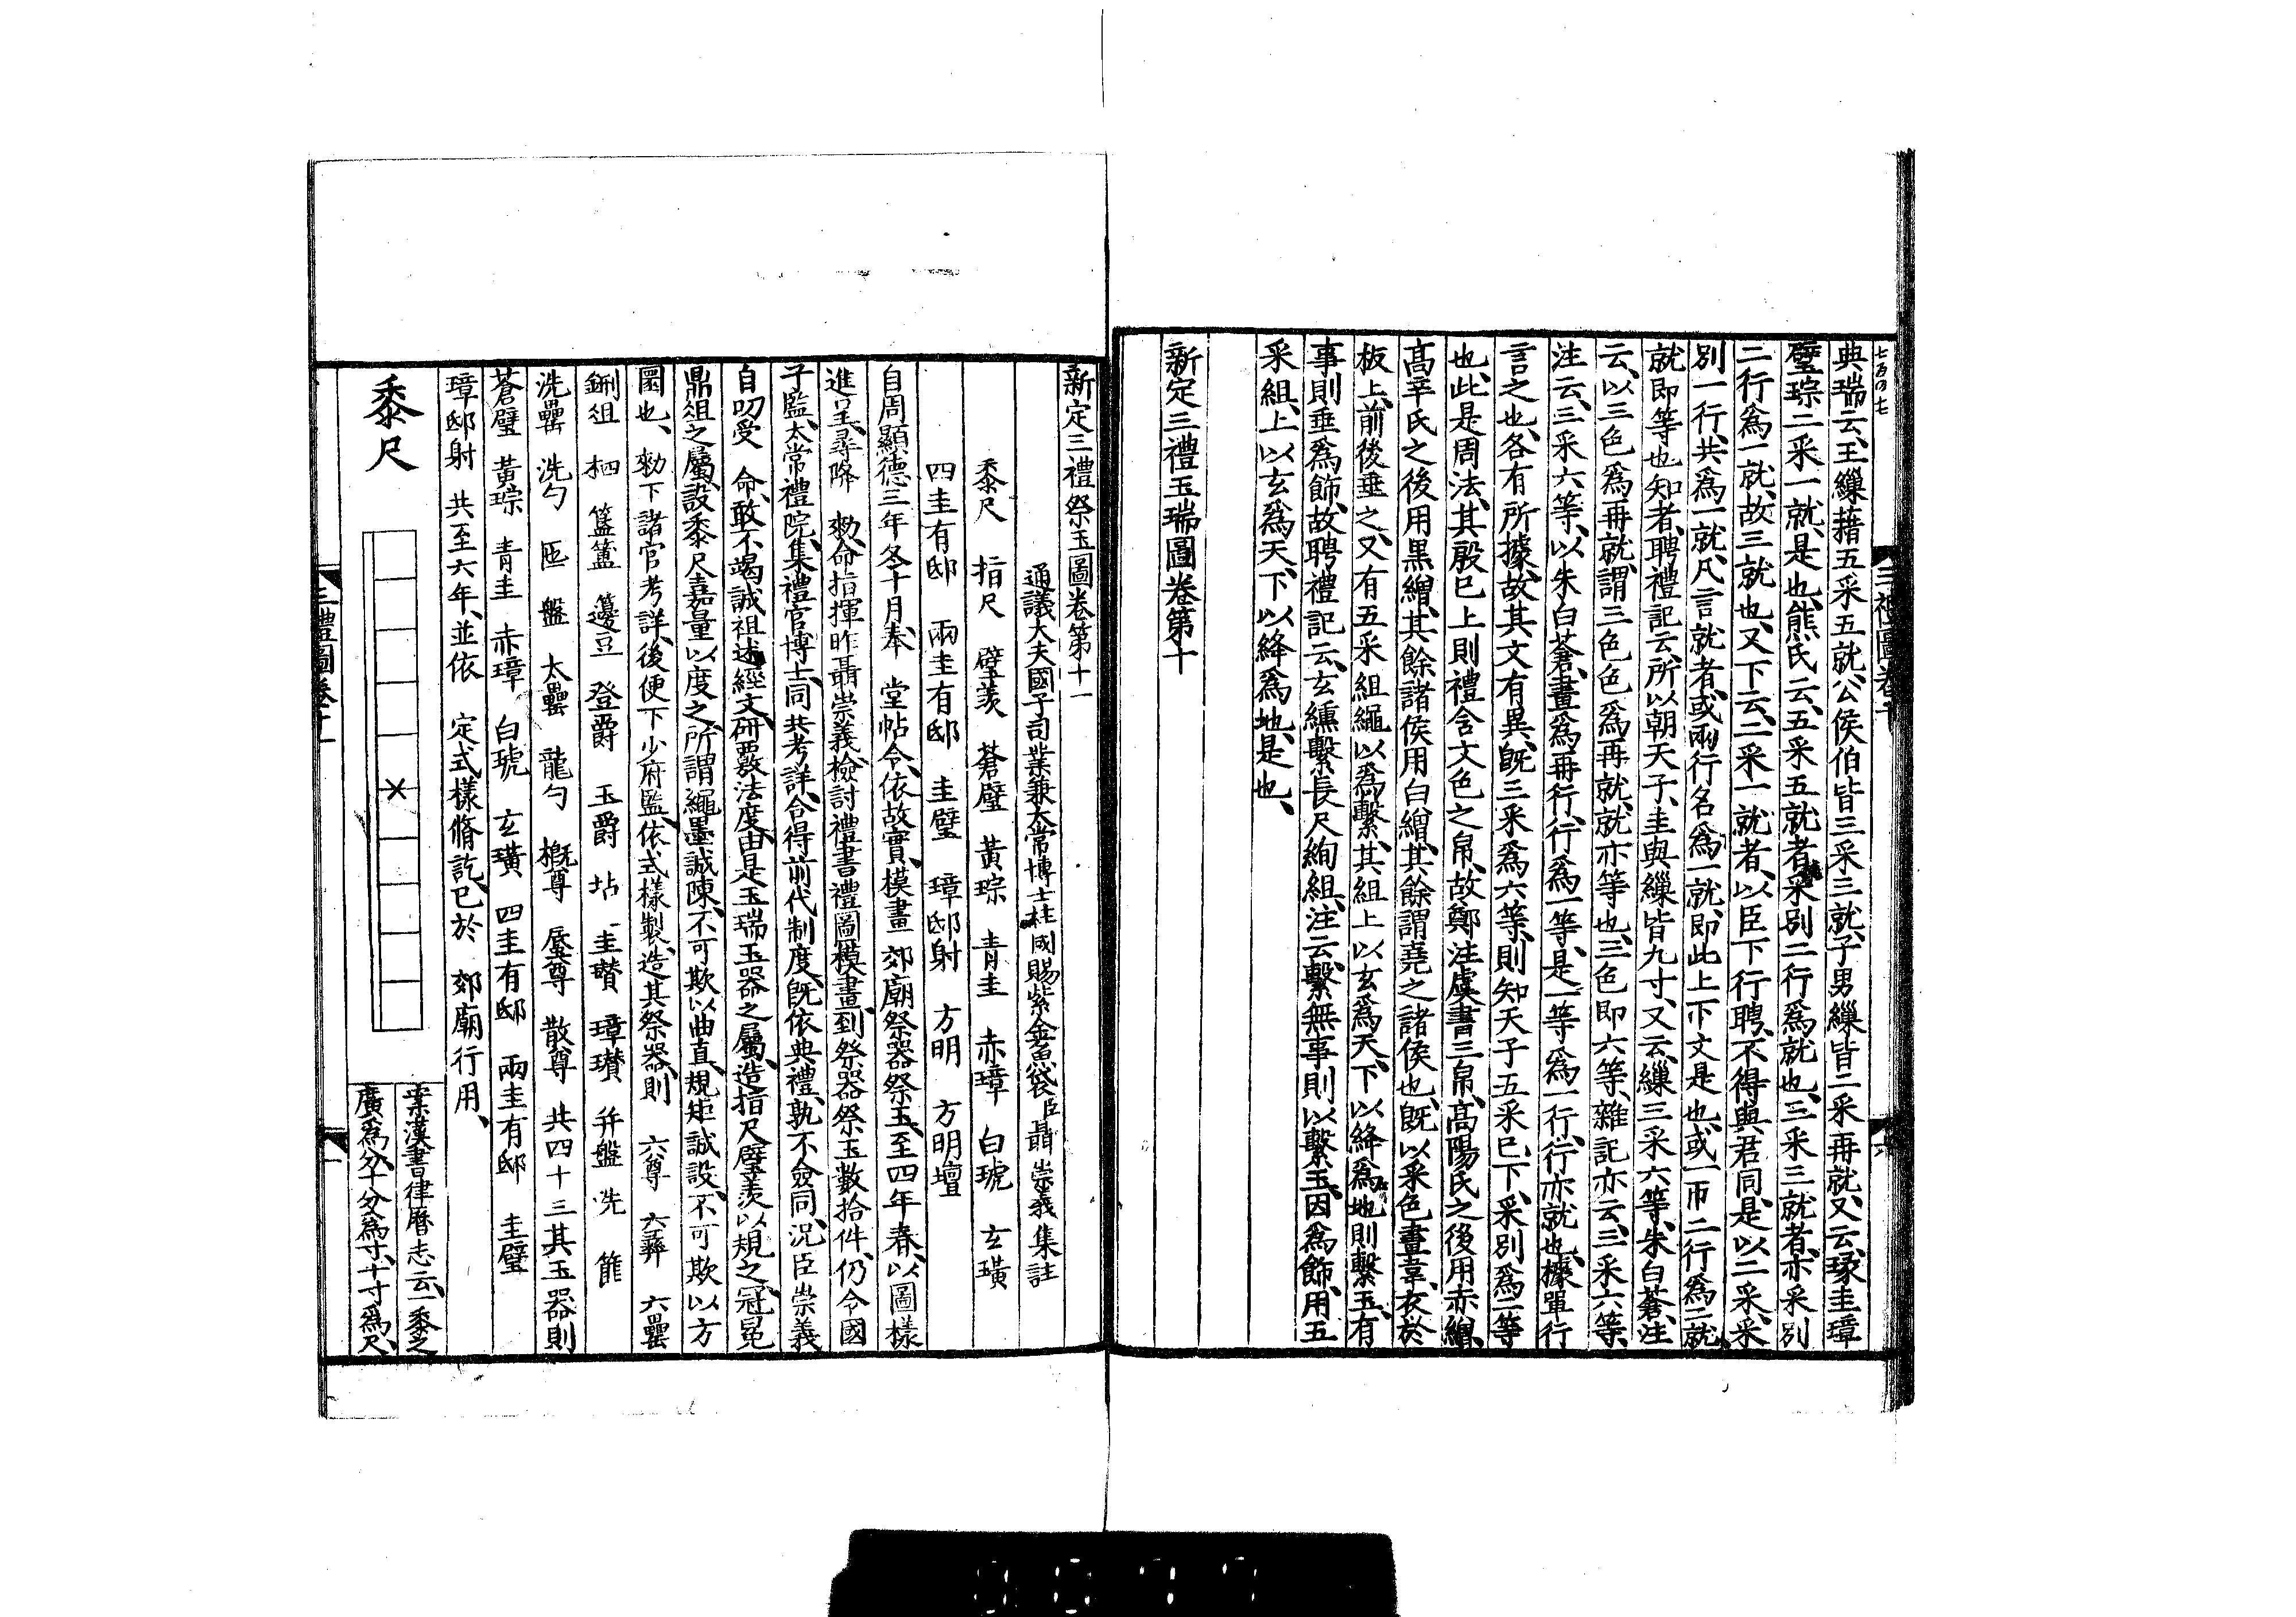 典瑞云、王繅藉五采五就、公侯伯皆三采三就、子男繅皆二采再就、又云、瑑圭璋
璧琮二采一就、是也、熊氏云、五采五就者、采別二行爲就也、三采三就者、亦采別
二行爲一就、故三就也、又下云、二采一就者、以臣下行聘、不得與君同、是以二采、采
別一行、共爲一就、凡言就者、或兩行名爲一就、即此上下文是也、或一帀二行爲二就、
就即等也知者、聘禮記云、所以朝天子、圭與繅皆九寸、又云、繅三采六等、朱白蒼、注
云、以三色爲再就、謂三色色爲再就、就亦等也、三色即六等、雜記亦云、三采六等、
注云、三采六等、以朱白蒼、畫爲再行、行爲一等、是一等爲一行、行亦就也、據單行
言之也、各有所據、故其文有異、既三采爲六等、則知天子五采已下、采別爲二等
也、此是周法、其殷已上則禮含文色之帛、故鄭注虞書三帛、高陽氏之後用赤繒、
高辛氏之後用黑繒、其餘諸侯用白繒、其餘謂堯之諸侯也、既以采色畫韋、衣於
板上、前後垂之、又有五采組繩以爲繫、其組上以玄爲天、下以絳爲地則繫玉、有
事則垂爲飾、故聘禮記云、玄纁繫長尺絢組、注云、繫無事則以繫玉、因爲飾、用五
采組、上以玄爲天、下以絳爲地、是也、
新定三禮玉瑞圖卷第十
新定三禮祭玉圖卷第十一
通議大夫國子司業兼太常博士柱國賜紫金魚袋臣聶崇義集註
黍尺 指尺 璧羨 蒼璧 黃琮 青圭 赤璋 白琥 玄璜
四圭有邸 兩圭有邸 圭璧 璋邸射 方明 方明壇
自周顯德三年冬十月、奉 堂帖令、依故實、模畫 郊廟祭器祭玉、至四年春、以圖樣
進呈、尋降 勑、命指揮昨聶崇義檢討禮書禮圖模畫、到祭器祭玉數拾件、仍令國
子監、太常禮院、集禮官博士、同共考詳、合得前代制度、既依典禮、孰不僉同、況臣崇義
自叨受 命、敢不竭誠祖述經文、研覈法度、由是玉瑞玉器之屬、造指尺璧羨以規之、冠冕
鼎俎之屬、設黍尺嘉量以度之、所謂繩墨誠陳、不可欺以曲直、規矩誠設、不可欺以方
圜也、勑下諸官考詳、後便下少府監、依式樣製造、其祭器、則 六尊 六彝 六罍
鉶俎 柶 簠簋 籩豆 登爵 玉爵 坫 圭瓚 璋瓚 幷盤 洗 篚
洗罍 洗勺 匜 盤 太罍 龍勺 概尊 蜃尊 散尊 共四十三其玉器則
蒼璧 黃琮 青圭 赤璋 白琥 玄璜 四圭有邸 兩圭有邸 圭璧
璋邸射 共至六年、並依 定式樣脩訖、已於 郊廟行用、
黍尺
案漢書律曆志云、一黍之
廣爲分、十分爲寸、十寸爲尺、
三禮圖卷十一
一